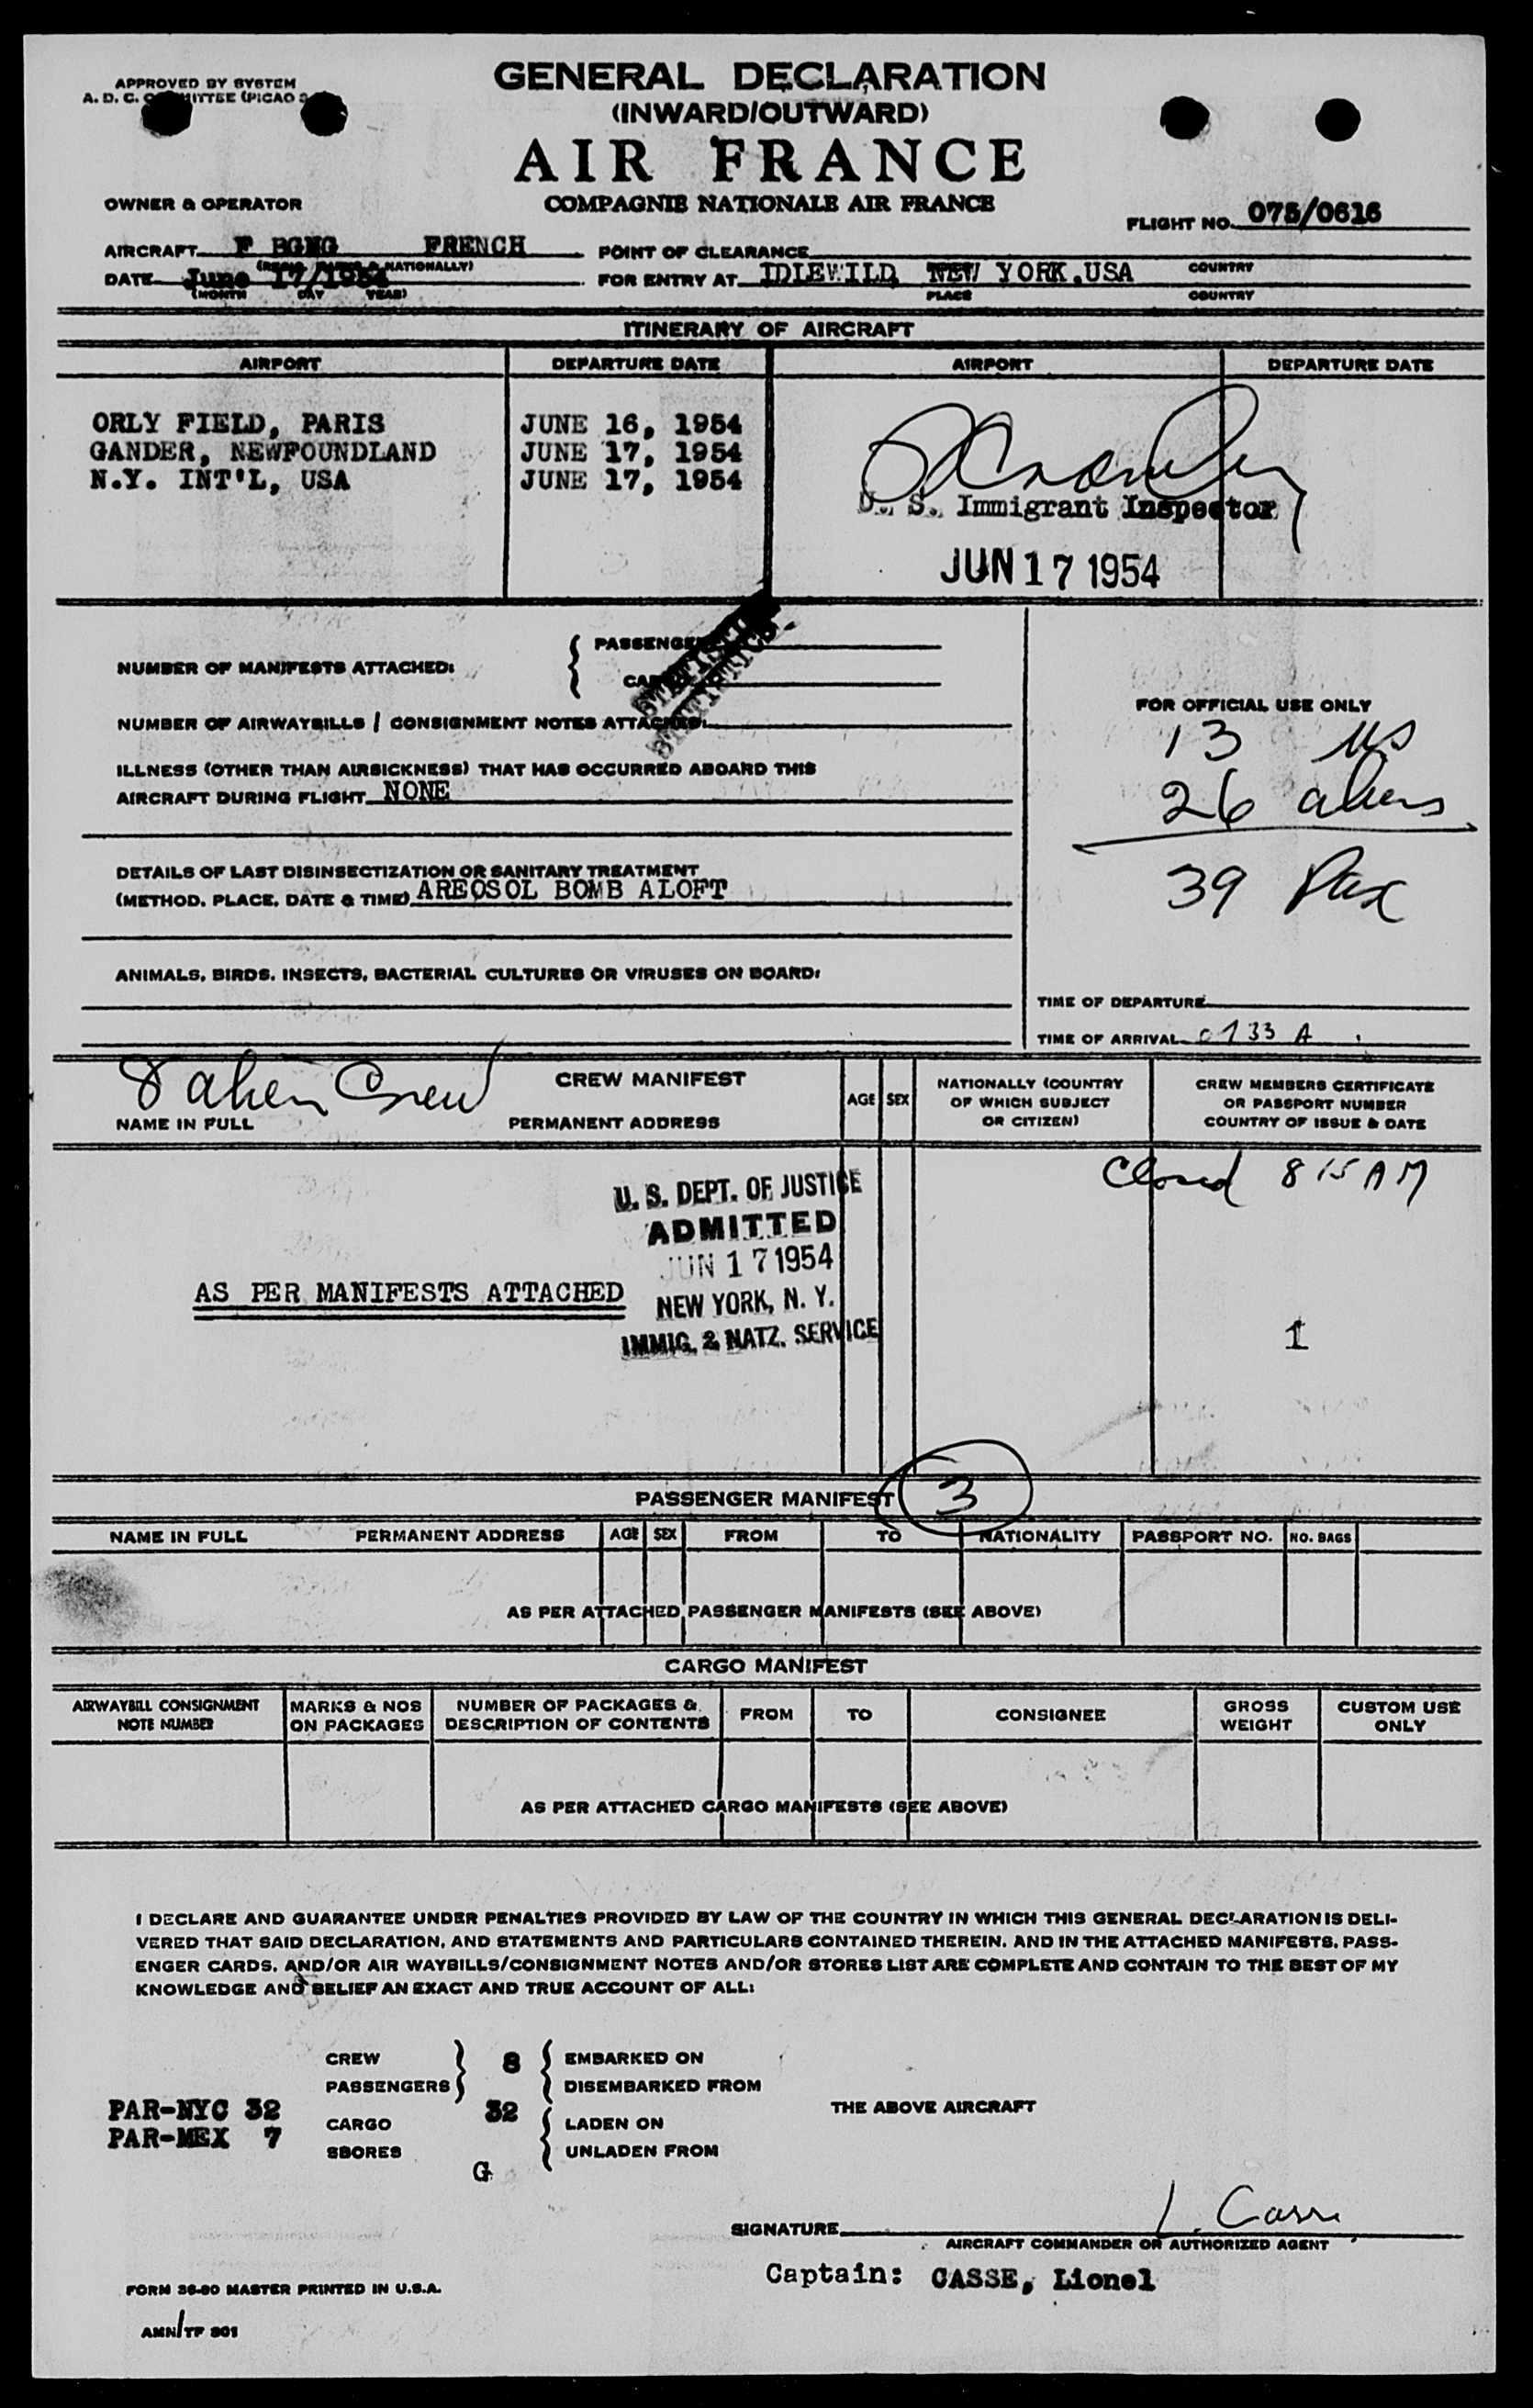 APPROVED BY SYSTEM
GENERAL DECLARATION
(INWARD/OUTWARD)
AIR FRANCE
COMPAGNIE NATIONALE AIR FRANCE
OWNER & OPERATOR
FLIGHT NO. 075/0616
AIRCRAFT F BGNG FRENCH POINT OF CLEARANCE
NATIONALLY) COUNTRY
DATE June 17/1954 FOR ENTRY AT IDLEWILD NEW YORK.USA
(MONTH DAY YEAR) PLACE COUNTRY
ITINERARY OF AIRCRAFT
AIRPORT DEPARTURE DATE AIRPORT DEPARTURE DATE
ORLY FIELD, PARIS JUNE 16, 1954
GANDER, NEWFOUNDLAND JUNE 17, 1954
N.Y. INT'L, USA JUNE 17, 1954
U. S. Immigrant Inspector
JUN 17 1954
PASSENGER
NUMBER OF MANIFESTS ATTACHED:
CARGO
FOR OFFICIAL USE ONLY
NUMBER OF AIRWAYBILLS / CONSIGNMENT NOTES ATTACHED:
13 US
ILLNESS (OTHER THAN AIRSICKNESS) THAT HAS OCCURRED ABOARD THIS
AIRCRAFT DURING FLIGHT NONE
26 aliens
39 Pax
DETAILS OF LAST DISINSECTIZATION OR SANITARY TREATMENT
(METHOD. PLACE. DATE & TIME) AREOSOL BOMB ALOFT
ANIMALS. BIRDS. INSECTS. BACTERIAL CULTURES OR VIRUSES ON BOARD:
TIME OF DEPARTURE
TIME OF ARRIVAL 0733 A
8 alien Crew
CREW MANIFEST
NAME IN FULL PERMANENT ADDRESS AGE SEX
NATIONALLY (COUNTRY
OF WHICH SUBJECT
OR CITIZEN)
CREW MEMBERS CERTIFICATE
OR PASSPORT NUMBER
COUNTRY OF ISSUE & DATE
Closed 815 AM
U. S. DEPT. OF JUSTICE
ADMITTED
JUN 17 1954
NEW YORK, N. Y.
IMMIG. & NATZ. SERVICE
AS PER MANIFESTS ATTACHED
1
PASSENGER MANIFEST 3
NAME IN FULL PERMANENT ADDRESS AGE SEX FROM TO NATIONALITY PASSPORT NO. NO. BAGS
AS PER ATTACHED PASSENGER MANIFESTS (SEE ABOVE)
CARGO MANIFEST
AIRWAYBILL CONSIGNMENT
NOTE NUMBER
MARKS & NOS
ON PACKAGES
NUMBER OF PACKAGES &
DESCRIPTION OF CONTENTS
FROM TO CONSIGNEE
GROSS
WEIGHT
CUSTOM USE
ONLY
AS PER ATTACHED CARGO MANIFESTS (SEE ABOVE)
I DECLARE AND GUARANTEE UNDER PENALTIES PROVIDED BY LAW OF THE COUNTRY IN WHICH THIS GENERAL DECLARATION IS DELI-
VERED THAT SAID DECLARATION, AND STATEMENTS AND PARTICULARS CONTAINED THEREIN. AND IN THE ATTACHED MANIFESTS. PASS-
ENGER CARDS. AND/OR AIR WAYBILLS/CONSIGNMENT NOTES AND/OR STORES LIST ARE COMPLETE AND CONTAIN TO THE BEST OF MY
KNOWLEDGE AND BELIEF AN EXACT AND TRUE ACCOUNT OF ALL:
CREW 8 EMBARKED ON
PASSENGERS DISEMBARKED FROM
PAR-NYC 32 CARGO 32 LADEN ON THE ABOVE AIRCRAFT
PAR-MEX 7 SBORES UNLADEN FROM
G
SIGNATURE L. Casse
AIRCRAFT COMMANDER OR AUTHORIZED AGENT
Captain: CASSE, Lionel
FORM 36-90 MASTER PRINTED IN U.S.A.
AMN/TF 801